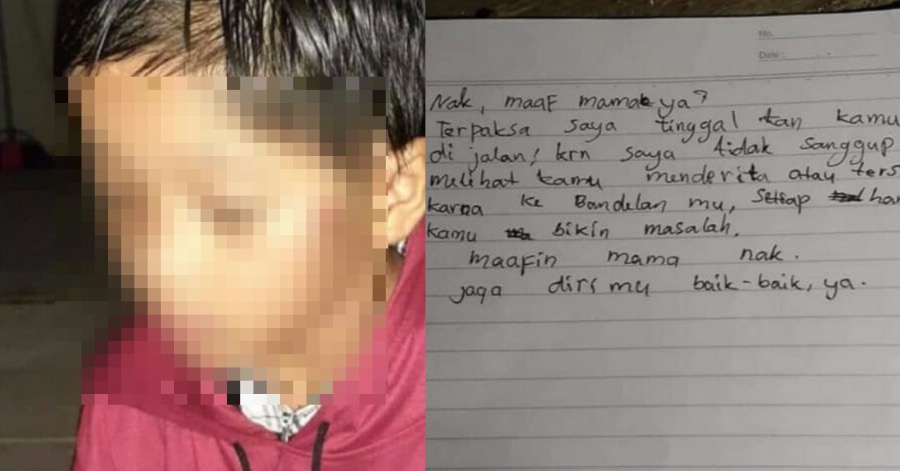 No.
Date :
Nak, maaf mamak ya?
Terpaksa saya tinggal kan kamu
di jalan! krn saya tidak sanggup
melihat kamu menderita atau ters
karna ke Bandelan mu, Setiap har
kamu bikin masalah.
maafin mama nak.
jaga diri mu baik-baik, ya.